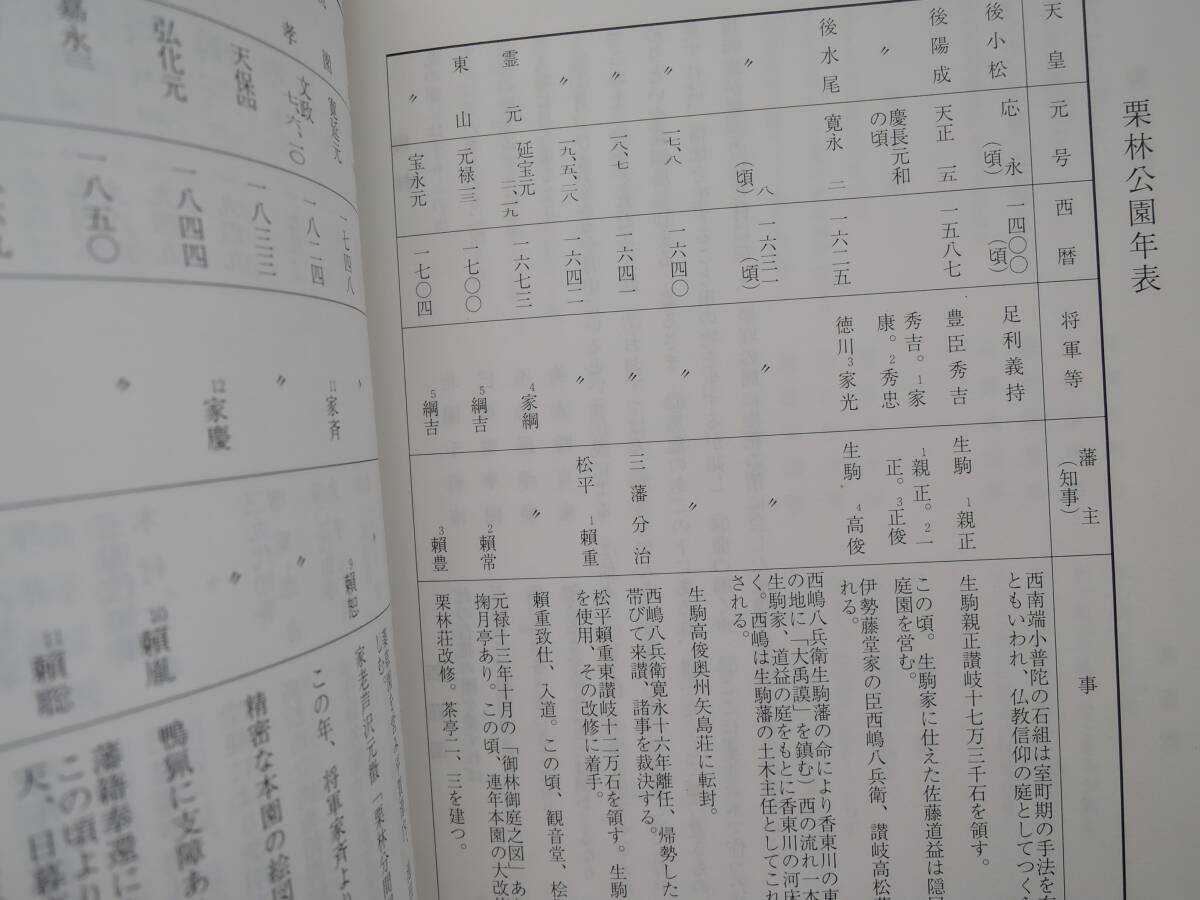 栗林公園年表
天皇 元号 西暦 将軍等 藩主(知事) 事
後小松 応永(頃) 一四〇〇(頃) 足利義持
西南端小普陀の石組は室町期の手法を
ともいわれ、仏教信仰の庭としてつく
後陽成 天正一五 一五八七 豊臣秀吉 生駒1親正
生駒親正讃岐十七万三千石を領す。
〃 慶長元和の頃 秀吉。1家康。2秀忠 1親正。2一正。3正俊
この頃。生駒家に仕えた佐藤道益は隠居
庭園を営む。
後水尾 寛永二 一六二五 徳川3家光 生駒4高俊
伊勢藤堂家の臣西嶋八兵衛、讃岐高松藩
れる。
〃 八(頃) 一六三一(頃) 〃 〃
西嶋八兵衛生駒藩の命により香東川の東
の地に「大禹謨」を鎮む)西の流れ一本
生駒家、道益の庭をもとに香東川の河床
く。西嶋は生駒藩の土木主任としてこれ
される。
〃 一七、八 一六四〇 〃 〃
生駒高俊奥州矢島荘に転封。
〃 一八、七 一六四一 〃 三藩分治
西嶋八兵衛寛永十六年離任、帰勢した
帯びて来讃、諸事を裁決する。
〃 一九、五、二八 一六四二 〃 松平1頼重
松平頼重東讃岐十二万石を領す。生駒
を使用、その改修に着手。
霊元 延宝元二、一九 一六七三 4家綱 〃
頼重致仕、入道。この頃、観音堂、桧
東山 元禄一三 一七〇〇 5綱吉 2頼常
元禄十三年十月の「御林御庭之図」あ
掬月亭あり。この頃、連年本園の大改
〃 宝永元 一七〇四 5綱吉 3頼豊
栗林荘改修。茶亭二、三を建つ。
桃園 寛延元 一七四八 〃 〃
孝 文政七、六、一〇 一八二四 11家斉 9頼恕
家老芦沢元徹「栗林分間
天保 一八三三 〃 〃
この年、将軍家斉より
弘化元 一八四四 12家慶 〃
精密な本園の絵図
嘉永三 一八五〇 〃 10頼胤
鴨猟に支障あ
11頼聡
藩籍奉還に
この頃より
天、日暮